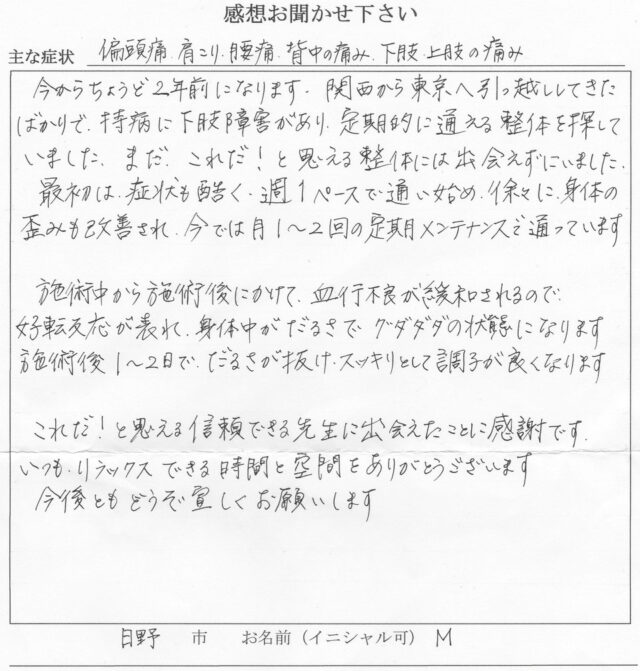 感想お聞かせ下さい
主な症状 偏頭痛、肩こり、腰痛、背中の痛み、下肢、上肢の痛み
今からちょうど2年前になります。関西から東京へ引っ越ししてきた
ばかりで、持病に下肢障害があり、定期的に通える整体を探して
いました。まだ、これだ！と思える整体には出会えずにいました。
最初は、症状も酷く、週1ペースで通い始め、徐々に、身体の
歪みも改善され、今では月1～2回の定期メンテナンスで通っています
施術中から施術後にかけて、血行不良が緩和されるので、
好転反応が表れ、身体中がだるさで、グダダダの状態になります
施術後1～2日で、だるさが抜け、スッキリとして調子が良くなります
これだ！と思える信頼できる先生に出会えたことに感謝です。
いつも、リラックスできる時間と空間をありがとうございます
今後ともどうぞ宜しくお願いします
日野 市 お名前（イニシャル可） M